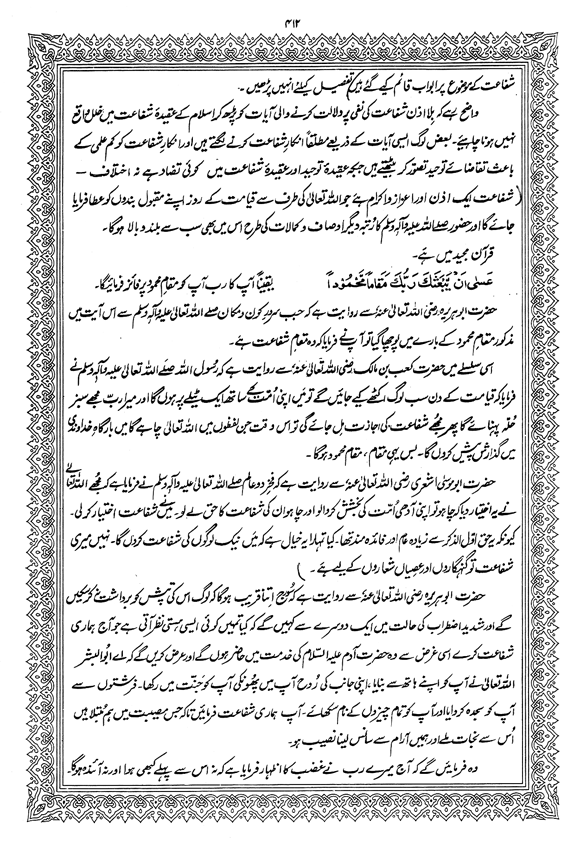 ۴۱۲
شفاعت کے موضوع پر ابواب قائم کیے گئے ہیں (تفصیل کیلئے انہیں پڑھیں ۔
واضح رہے کہ بلا اذن شفاعت کی نفی پر دلالت کرنے والی آیات کو پڑھ کر اسلام کے عقیدۂ شفاعت میں خلل واقع
نہیں ہونا چاہیے ۔ بعض لوگ ایسی آیات کے ذریعے مطلقاً انکارِ شفاعت کرنے لگتے ہیں اور انکارِ شفاعت کو کم علمی کے
باعث تقاضائے توحید تصور کر بیٹھتے ہیں جبکہ عقیدۂ توحید اور عقیدۂ شفاعت میں کوئی تضاد ہے نہ اختلاف —
(شفاعت ایک اذن اور اعزاز و اکرام ہے جو اللہ تعالیٰ کی طرف سے قیامت کے روز اپنے مقبول بندوں کو عطا فرمایا
جائے گا اور حضور صلے اللہ علیہ وآلہ وسلم کا رُتبہ دیگر اوصاف و کمالات کی طرح اس میں بھی سب سے بلند و بالا ہوگا ۔
قرآن مجید میں ہے ۔
عَسٰى اَنْ يَّبْعَثَكَ رَبُّكَ مَقَامًا مَّحْمُوْدًا یقیناً آپ کا رب آپ کو مقامِ محمود پر فائز فرمائیگا ۔
حضرت ابوہریرہ رضی اللہ تعالیٰ عنہ سے روایت ہے کہ جب سرورِ کون و مکان صلے اللہ تعالیٰ علیہ وآلہٖ وسلم سے اس آیت میں
مذکور مقام محمود کے بارے میں پوچھا گیا تو آپ نے فرمایا کہ وہ مقامِ شفاعت ہے ۔
اسی سلسلے میں حضرت کعب بن مالک رضی اللہ تعالیٰ عنہ سے روایت ہے کہ رسول اللہ صلے اللہ تعالیٰ علیہ وآلہ وسلم نے
فرمایا کہ قیامت کے دن سب لوگ اکٹھے کیے جائیں گے تو میں اپنی اُمت کے ساتھ ایک ٹیلے پر ہوں گا اور میرا رب مجھے سبز
حُلّہ پہنائے گا پھر مجھے شفاعت کی اجازت مل جائے گی تو اس وقت جن لفظوں میں اللہ تعالیٰ چاہے گا میں بارگاہِ خداوندی
میں گذارش پیش کروں گا ۔ بس یہی مقام ، مقامِ محمود ہوگا ۔
حضرت ابو موسیٰ اشعری رضی اللہ تعالیٰ عنہ سے روایت ہے کہ فخرِ دو عالم صلے اللہ تعالیٰ علیہ وآلہ وسلم نے فرمایا ہے کہ مجھے اللہ تعالیٰ
نے یہ اختیار دیا کہ چاہو تو اپنی آدھی اُمت کی بخشش کروا لو اور چاہو ان کی شفاعت کا حق لے لو ۔ میں نے شفاعت اختیار کر لی ۔
کیونکہ یہ حق اوّل الذکر سے زیادہ عام اور فائدہ مند تھا ۔ کیا تمہارا یہ خیال ہے کہ میں نیک لوگوں کی شفاعت کروں گا ۔ نہیں میری
شفاعت تو گنہگاروں اور عصیاں شعاروں کے لیے ہے ۔ )
حضرت ابوہریرہ رضی اللہ تعالیٰ عنہ سے روایت ہے کہ سورج اتنا قریب ہوگا کہ لوگ اس کی تپش کو برداشت نہ کر سکیں
گے اور شدید اضطراب کی حالت میں ایک دوسرے سے کہیں گے کہ کیا تمہیں کوئی ایسی ہستی نظر آتی ہے جو آج ہماری
شفاعت کرے اسی غرض سے وہ حضرت آدم علیہ السلام کی خدمت میں حاضر ہوں گے اور عرض کریں گے کہ اے ابو البشر
اللہ تعالیٰ نے آپ کو اپنے ہاتھ سے بنایا ، اپنی جانب کی رُوح آپ میں پھونکی آپ کو جنت میں رکھا ۔ فرشتوں سے
آپ کو سجدہ کروایا اور آپ کو تمام چیزوں کے نام سکھائے ۔ آپ ہماری شفاعت فرمائیں تاکہ جس مصیبت میں ہم مبتلا ہیں
اُس سے نجات ملے اور ہمیں آرام سے سانس لینا نصیب ہو ۔
وہ فرمائیں گے کہ آج میرے رب نے غضب کا اظہار فرمایا ہے کہ نہ اس سے پہلے کبھی ہوا اور نہ آئندہ ہوگا ۔